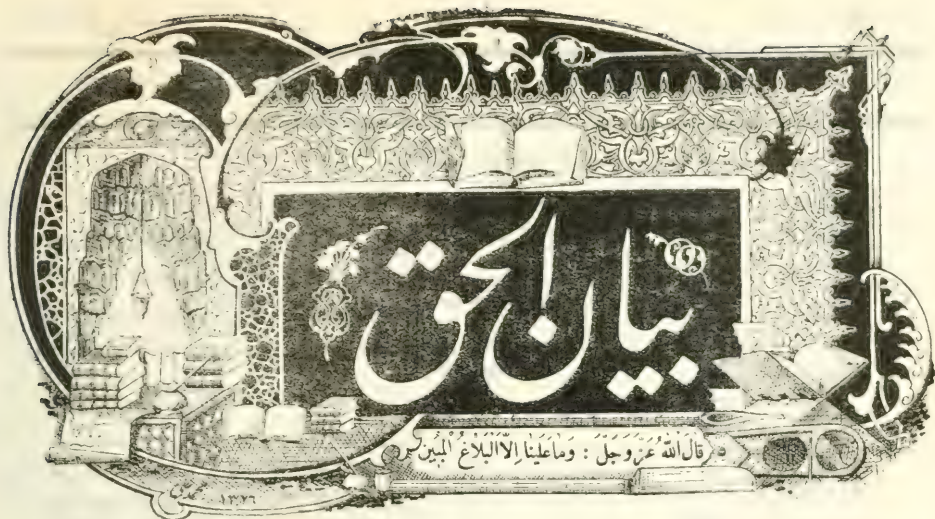 بيان الحق
قال الله عز وجل : وَمَا عَلَيْنَا اِلَّا الْبَلَاغُ الْمُبِينُ
١٣٢٦